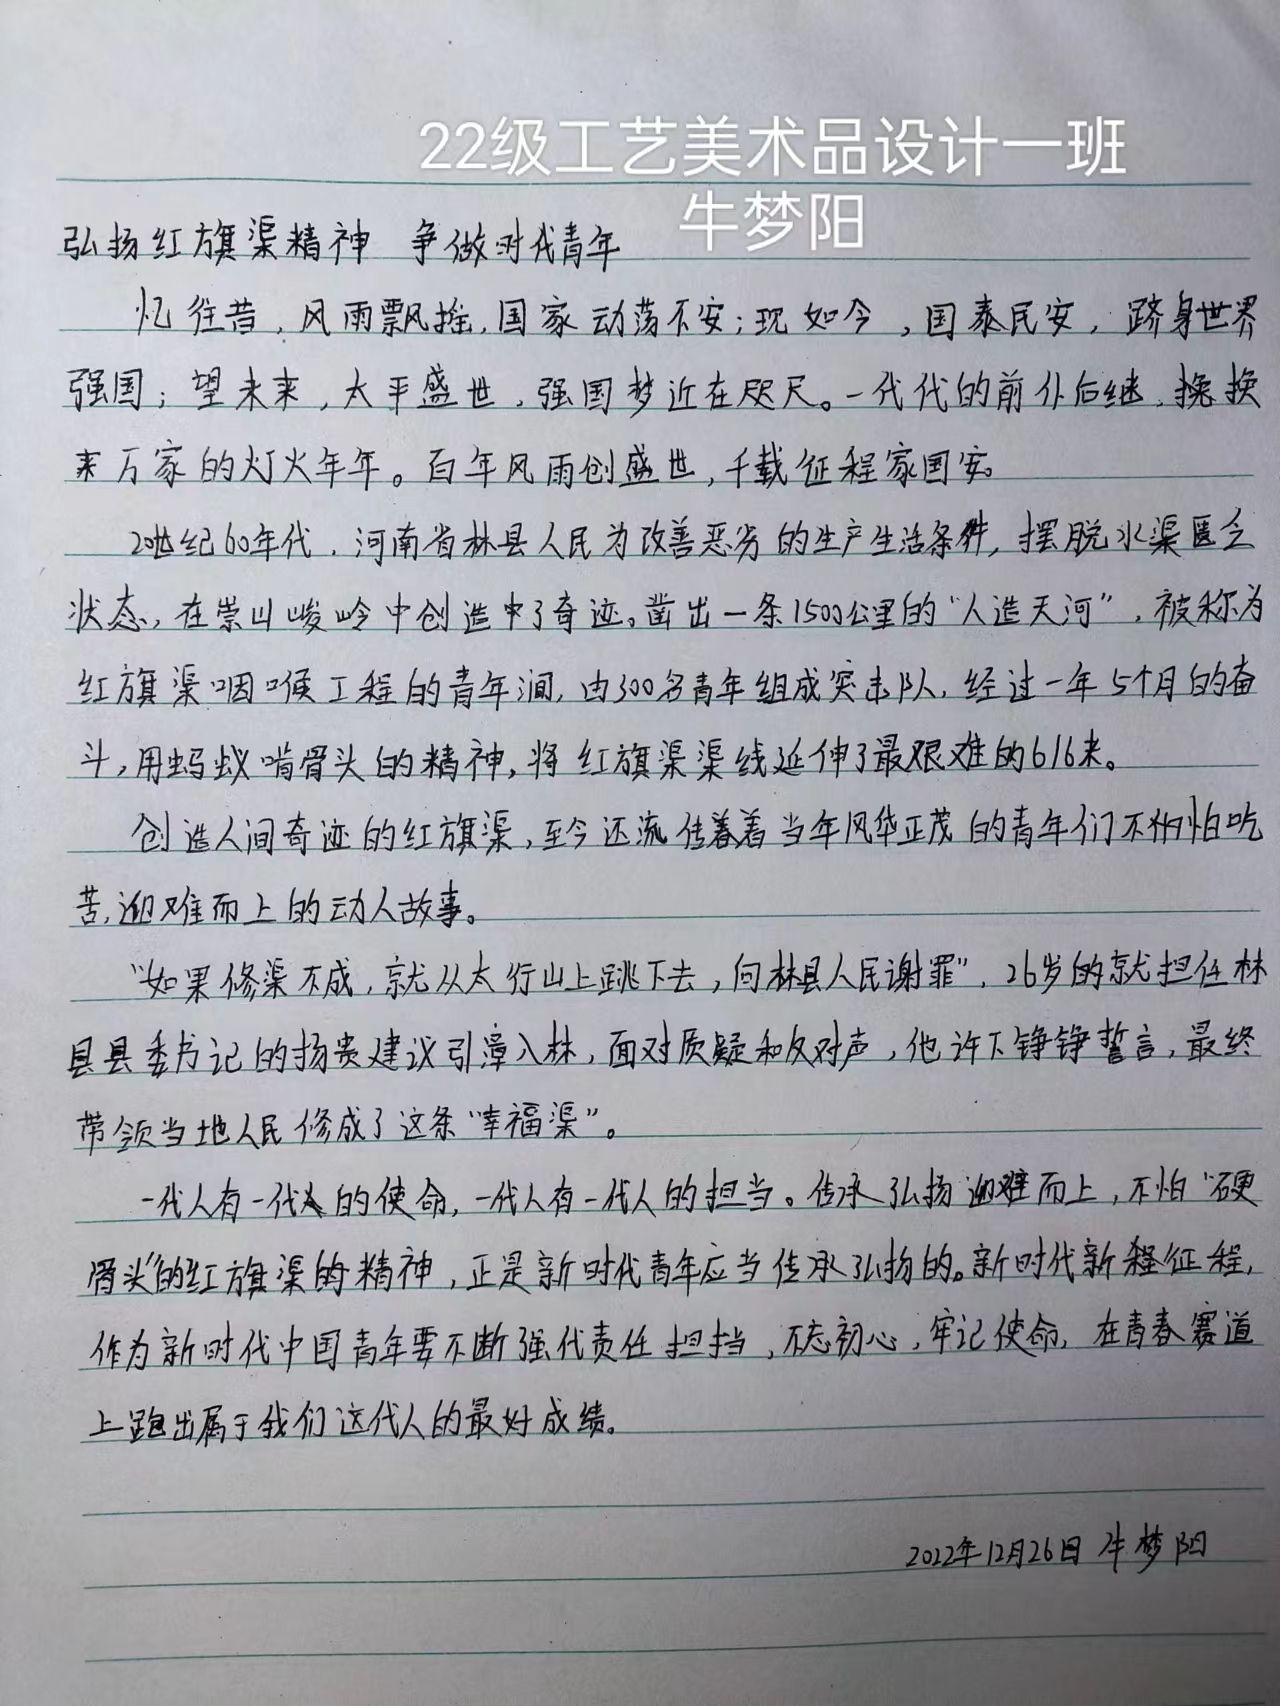 22级工艺美术品设计一班
牛梦阳
弘扬红旗渠精神 争做时代青年
忆往昔，风雨飘摇，国家动荡不安；现如今，国泰民安，跻身世界
强国；望未来，太平盛世，强国梦近在咫尺。一代代的前仆后继，换
来万家的灯火年年。百年风雨创盛世，千载征程家国安。
20世纪60年代，河南省林县人民为改善恶劣的生产生活条件，摆脱水渠匮乏
状态，在崇山峻岭中创造中了奇迹。凿出一条1500公里的“人造天河”，被称为
红旗渠咽喉工程的青年洞，由300名青年组成突击队，经过一年5个月的奋
斗，用蚂蚁啃骨头的精神，将红旗渠渠线延伸了最艰难的616米。
创造人间奇迹的红旗渠，至今还流传着当年风华正茂的青年们不怕吃
苦，迎难而上的动人故事。
“如果修渠不成，就从太行山上跳下去，向林县人民谢罪”，26岁的就担任林
县县委书记的杨贵建议引漳入林，面对质疑和反对声，他许下铮铮誓言，最终
带领当地人民修成了这条“幸福渠”。
一代人有一代人的使命，一代人有一代人的担当。传承弘扬迎难而上，不怕“硬
骨头”的红旗渠的精神，正是新时代青年应当传承弘扬的。新时代新征程，
作为新时代中国青年要不断强代责任担挡，不忘初心，牢记使命，在青春赛道
上跑出属于我们这代人的最好成绩。
2022年12月26日 牛梦阳